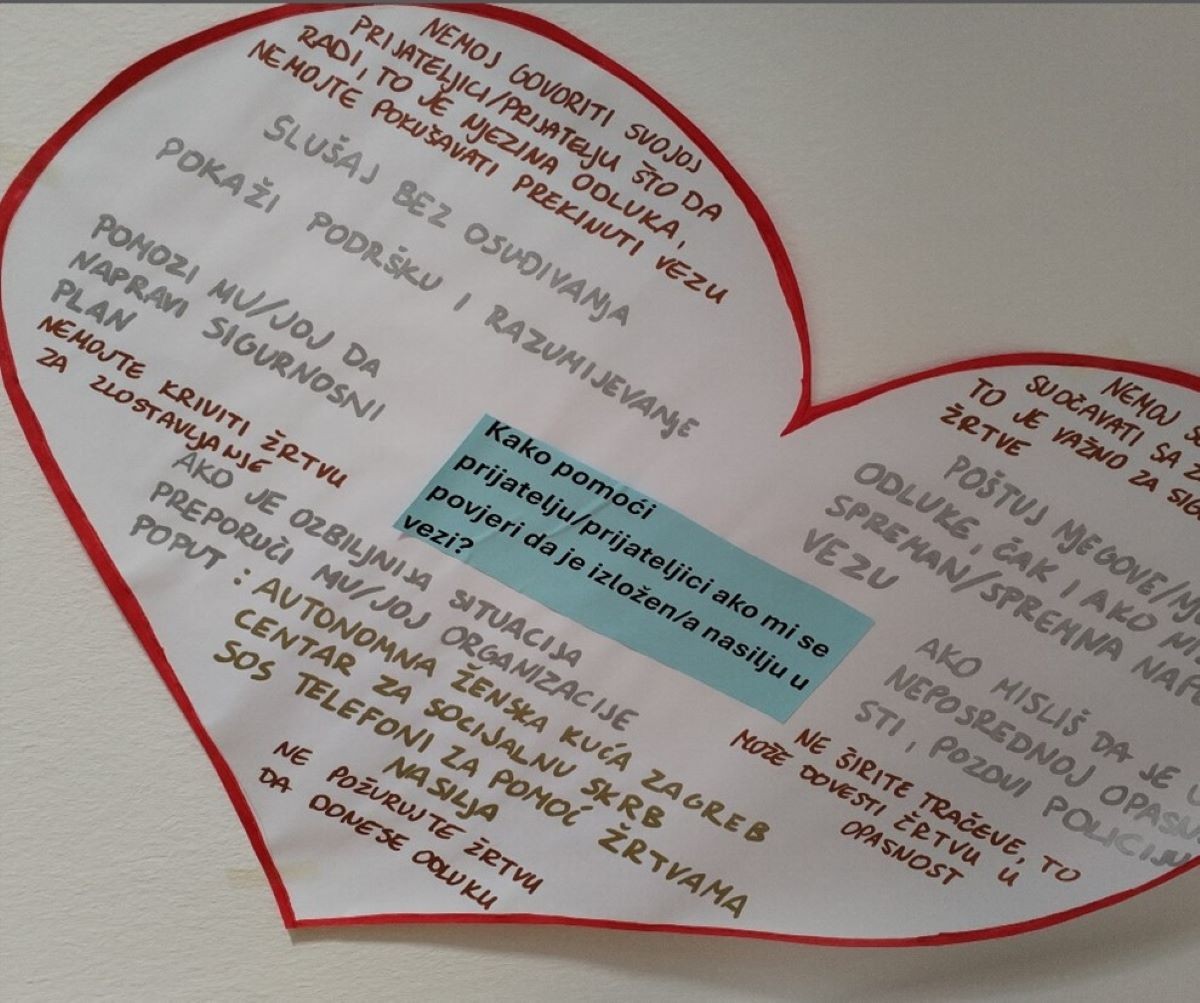 NEMOJ GOVORITI SVOJOJ
PRIJATELJICI/PRIJATELJU ŠTO DA
RADI, TO JE NJEZINA ODLUKA,
NEMOJTE POKUŠAVATI PREKINUTI VEZU
SLUŠAJ BEZ OSUĐIVANJA
POKAŽI PODRŠKU I RAZUMIJEVANJE
POMOZI MU/JOJ DA
NAPRAVI SIGURNOSNI
PLAN
NEMOJTE KRIVITI ŽRTVU
ZA ZLOSTAVLJANJE
AKO JE OZBILJNIJA SITUACIJA
PREPORUČI MU/JOJ ORGANIZACIJE
POPUT : AUTONOMNA ŽENSKA KUĆA ZAGREB
CENTAR ZA SOCIJALNU SKRB
SOS TELEFONI ZA POMOĆ ŽRTVAMA
NASILJA
NE POŽURUJTE ŽRTVU
DA DONESE ODLUKU
Kako pomoći
prijatelju/prijateljici ako mi se
povjeri da je izložen/a nasilju u
vezi?
NEMOJ
SUOČAVATI SA
TO JE VAŽNO ZA
ŽRTVE
POŠTUJ NJEGOVE/
ODLUKE, ČAK I AKO
SPREMAN/SPREMNA
VEZU
AKO MISLIŠ DA JE U
NEPOSREDNOJ
STI, POZOVI POLICIJU
NE ŠIRITE TRAČEVE, TO
MOŽE DOVESTI ŽRTVU U
OPASNOST